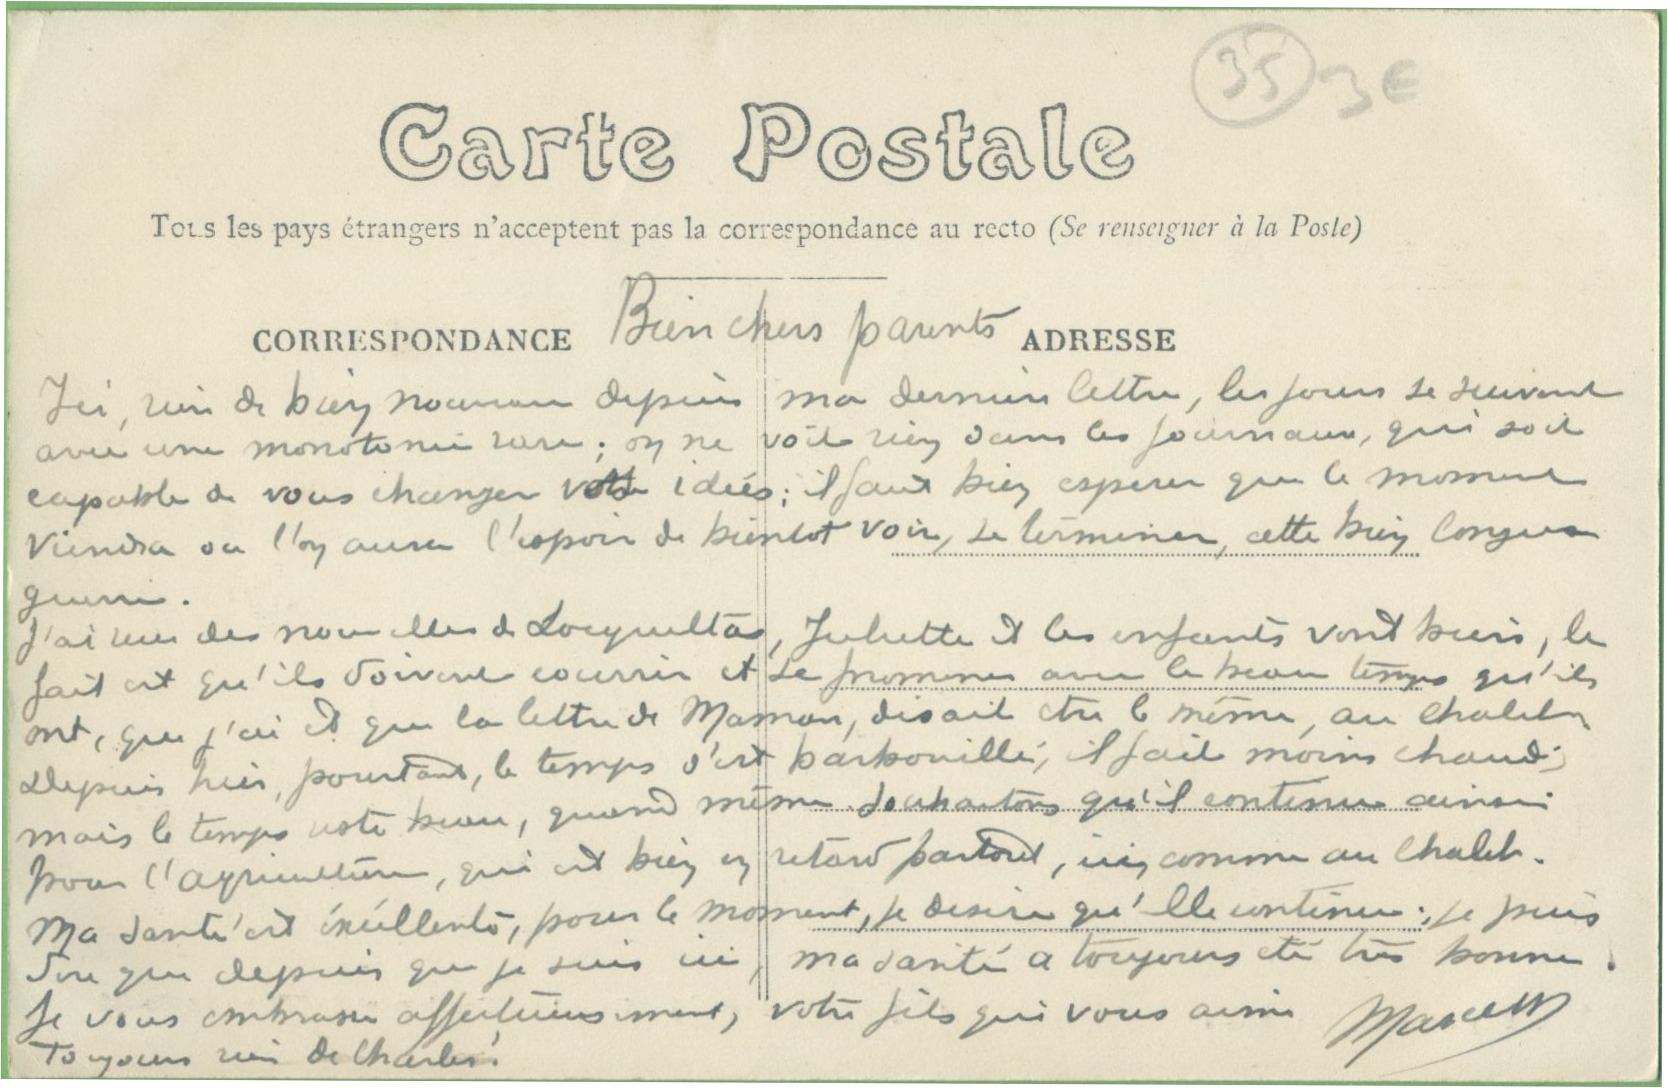 35 3€
Carte Postale
Tous les pays étrangers n'acceptent pas la correspondance au recto (Se renseigner à la Poste)
CORRESPONDANCE Bien chers parents ADRESSE
Ici, rien de bien nouveau depuis ma dernière lettre, les jours se suivent
avec une monotonie rare ; on ne voit rien dans les journaux, qui soit
capable de vous changer votre idées ; il faut bien esperer que le moment
viendra ou l'on aura l'espoir de bientot voir, se terminer, cette bien longue
guerre.
J'ai reçu des nouvelles de Locqueltas, Juliette et les enfants vont bien, le
fait est qu'ils doivent courrir et se promener avec le beau temps qu'ils
ont, que j'ai et que la lettre de Maman, disait etre le même, au Chalet
Depuis hier, pourtant, le temps s'est barbouillé, il fait moins chaud ;
mais le temps reste beau, quand même souhaitons qu'il continue ainsi
pour l'agriculture, qui est bien en retard partout, ici, comme au Chalet.
Ma santé est excellente, pour le moment, je desire qu'elle continue ; je puis
dire que depuis que je suis ici, ma santé a toujours été très bonne.
Je vous embrasse affectueusement, votre fils qui vous aime Marcel
Toujours rien de Charles !